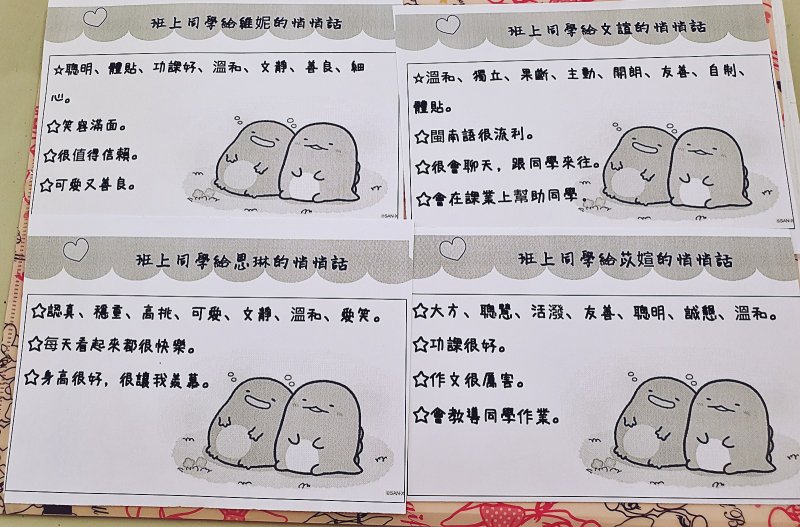 班上同學給維妮的悄悄話
☆聰明、體貼、功課好、溫和、文靜、善良、細
心。
☆笑容滿面。
☆很值得信賴。
☆可愛又善良。
©SAN-X
班上同學給文誼的悄悄話
☆溫和、獨立、果斷、主動、開朗、友善、自制、
體貼。
☆閩南語很流利。
☆很會聊天，跟同學來往。
☆會在課業上幫助同學。
©SAN-X
班上同學給思琳的悄悄話
☆認真、穩重、高挑、可愛、文靜、溫和、愛笑。
☆每天看起來都很快樂。
☆身高很好，很讓我羨慕。
©SAN-X
班上同學給苡媗的悄悄話
☆大方、聰慧、活潑、友善、聰明、誠懇、溫和。
☆功課很好。
☆作文很厲害。
☆會教導同學作業。
©SAN-X